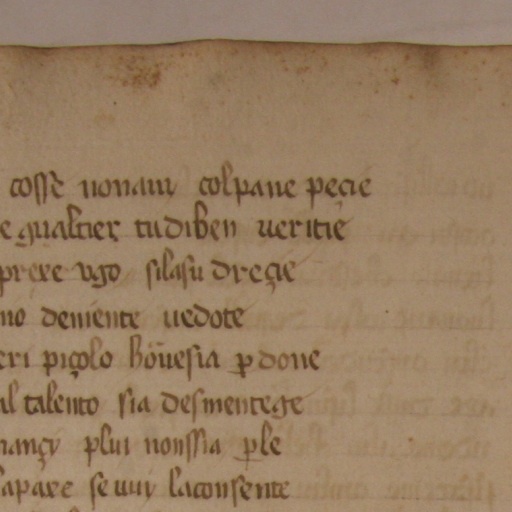 cosse nonauy colpane peçie
e gualtier tu diben ueritie
prexe ugo silasu dreçie
no deniente uedote
eri piçolo bouesia p done
al talento sia desmentege
nançy plui nonssia p le
sapare se uuy laconsente